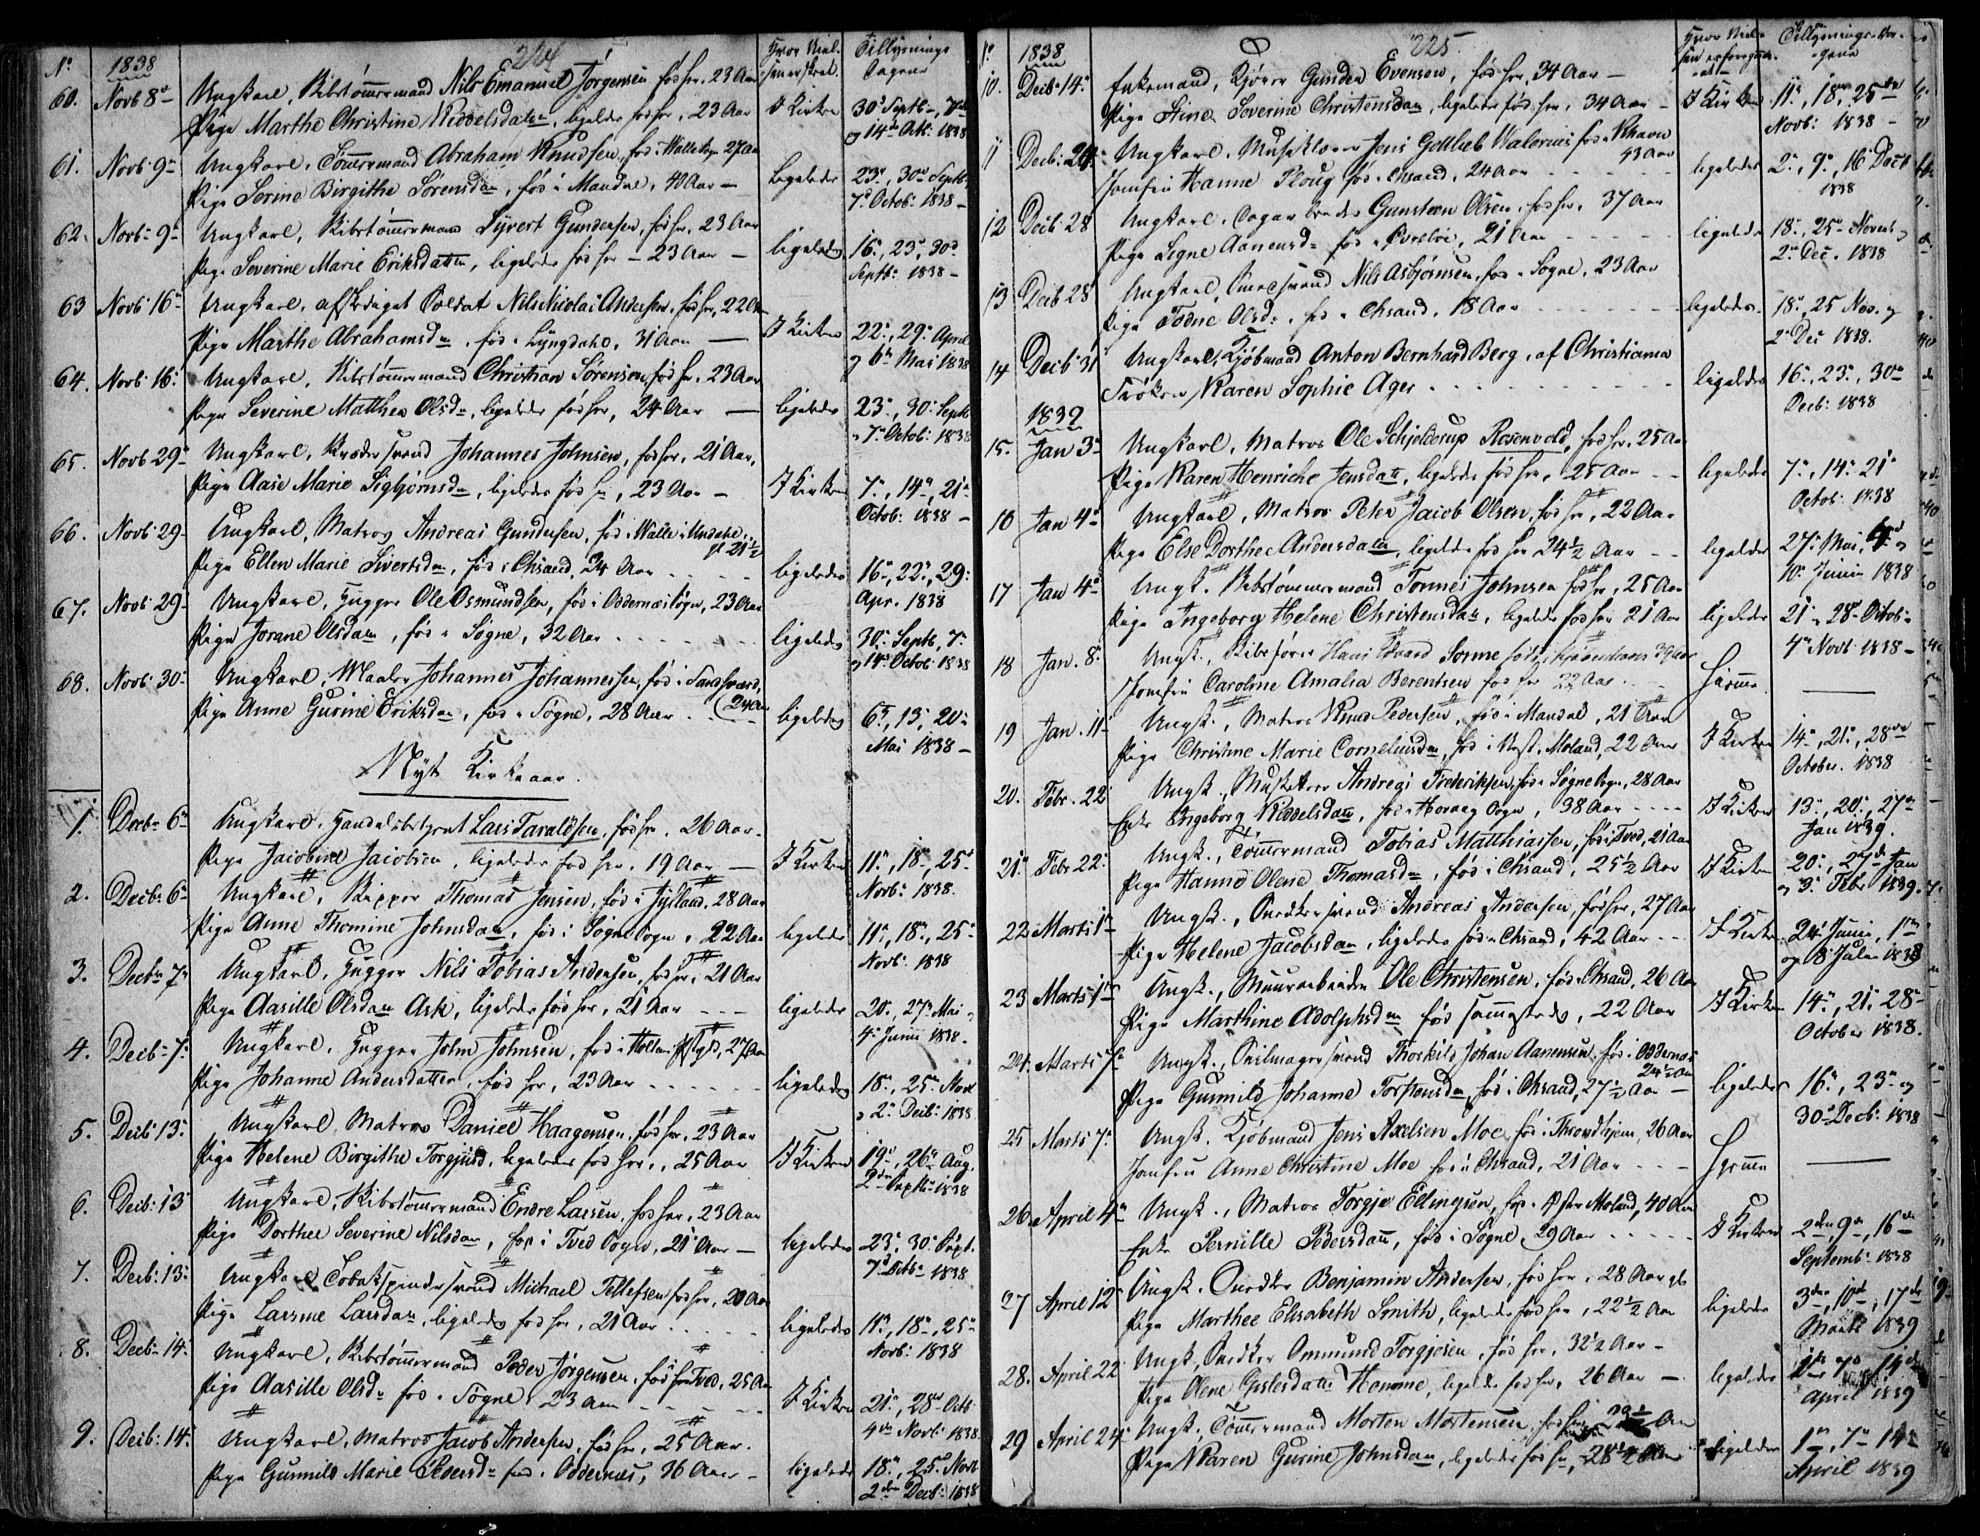 224
No 1838 Tillysnings Dagene
60. Novb 8de Ungkarl, Ribstømmermand Nils Emanuel Jørgensen, fød her, 23 Aar I Kirken 30te Septb., 7de
Pige Marthe Christine Reddelsdatter, ligeledes fød her, 23 Aar og 14de Oktb: 1838
61. Novb: 9de Ungkarl, Tømmermand Abraham Knudsen, fød i Walle Sogn 27 Aar
Pige Serine Birgithe Sørensdr, fød i Mandal, 40 Aar ligeledes 23de, 30te Septb.
7de Octob: 1838
62. Novb: 9de Ungkarl, Ribstømmermand Syvert Gundersen, fød her, 23 Aar
Pige Severine Marie Eriksdatter, ligeledes fød her 23 Aar ligeledes 16de, 23de, 30te
Septb: 1838
63 Novb 16de Ungkarl, afskediget Soldat Nils Nicolai Andersen, fød her, 22 Aar
Pige Marthe Abrahamsdr, fød i Lyngdahl, 31 Aar I Kirken 22de, 29de April
og 6te Mai 1838
64. Novb: 16de Ungkarl, Ribstømmermand Christian Sørensen, fød her, 23 Aar
Pige Severine Mathea Olsdr, ligeledes fød her, 24 Aar ligeledes 23de, 30te Septb
7de Octob: 1838
65. Novb 29de Ungkarl, Johannes Johnsen, fød her, 21 Aar,
Pige Aase Marie Sigbjørnsdr, ligeledes fød her, 23 Aar I Kirken 7de, 14de, 21de
Octob: 1838
66. Novb: 29 Ungkarl, Matros Andreas Gundersen, fød i Walle i Mandahl, 21½
Pige Ellen Marie Sivertsdr, fød i Chsand, 24 Aar ligeledes 16de, 22de, 29de
Apr. 1838
67. Novb: 29 Ungkarl, Hugger Ole Osmundsen, fød i Oddernæs Sogn, 23 Aar
Pige Jorane Olsdatr, fød i Søgne, 32 Aar ligeledes 30te Septb, 7de
og 14de Octob: 1838
68. Novb: 30te Ungkarl, Maaler Johannes Johannessen, fød i (24 Aar
Pige Anne Gurine Eriksdatr, fød i Søgne, 28 Aar ligeledes 6te, 13de, 20de
Mai 1838
Nyt Kirkeaar.
1. Decb 6te Ungkarl, Handelsbetjent Lars Taraldsen, fød her, 26 Aar.
Pige Jacobine Jacobsen, ligeledes fød her, 19 Aar I Kirken 11te, 18de, 25de
Novb: 1838.
2. Decb: 6te Ungkarl, Skipper Thomas Jensen, fød i Jylland, 28 Aar
Pige Anne Thomine Johnsdatr, fød i Søgne Sogn, 22 Aar ligeledes 11te, 18de, 25de
Novb: 1838
3. Decb 7de Ungkarl, Hugger Nils Tobias Andersen, fød her, 21 Aar
Pige Aasille Olsdatr Ask, ligeledes fød her, 21 Aar ligeledes 20de, 27de Mai
4de Junii 1838.
4. Decb: 7de Ungkarl, Hugger John Johnsen, fød i Holtens, 27 Aar
Pige Johanne Andersdatter, fød her, 23 Aar ligeledes 18de, 25de Novb
2den Decb: 1838
5. Decb: 13de Ungkarl, Matros Daniel Haagensen, fød her, 23 Aar
Pige Helene Birgithe Torgjusd, ligeledes fød her, 25 Aar I Kirken 19de, 26de Aug.
2den Septb: 1838
6. Decb: 13 Ungkarl, Ribstømmermand Endre Larsen, fød her, 23 Aar
Pige Dorthea Severine Nilsdatr, fød i Tved Sogn, 21 Aar ligeledes 23de, 30te Sept.
7de Octb: 1838
7. Decb: 13de Ungkarl, Tobakspindersvend Michael Tellefsen, fød her, 20 Aar
Pige Larsine Larsdatr, ligeledes fød her, 21 Aar ligeledes 11te, 18de, 25de
Novb: 1838
8. Decb: 14 Ungkarl, Ribstømmermand Peder Jørgensen, fød i Tved, 25 Aar
Pige Aasille Olsdr fød i Søgne, 23 Aar I Kirken 21de, 28de Octb
4de Novb: 1838
9. Decb: 14de Ungkarl, Matros Jacob Andersen, fød her, 25 Aar.
Pige Gunnild Marie Pedersdr fød i Oddernæs, 36 Aar ligeledes 18de, 25de Novb
2den Decb: 1838
225
1838
10. Decb 14de Enkemand, Kjører Gunder Evensen, fød her, 34 Aar
Pige Stine Severine Christensdatr, ligeledes fød her, 34 Aar I Kirken 11te, 18de, 25de
Novb: 1838
11 Decb: 24de Ungkarl, Musiklærer Jens Gottlieb Valerius fød i Khavn 43 Aar
Jomfru Hanne Ploug fød i Chsand, 24 Aar ligeledes 2den, 9de, 16de Decb
1838
12 Decb 28 Ungkarl, Gunsteen Olsen, fød her, 37 Aar
Pige Signe Aanensdr fød i Øvrebøe, 21 Aar ligeledes 18de, 25de Novemb.
2den Dec. 1838
13 Decb 28 Ungkarl, Nils Asbjørnsen, fød i Søgne, 23 Aar
Pige Todne Olsdr, fød i Chsand, 18 Aar ligeledes 18de, 25 Nov. og
2den Dec 1838.
14 Decb 31 Ungkarl, Kjøbmand Anton Bernhard Berg, af Christiania
Frøken Karen Sophie Ager ligeledes 16de, 23de, 30te
Decb: 1838
1839
15. Jan 3de Ungkarl, Matros Ole Schjelderup Rosenvold, fød her, 25 Aar
Pige Karen Henriche Jensdatr, ligeledes fød her, 25 Aar ligeledes 7de, 14de 21de
Octob: 1838
16 Jan 4de Ungkarl, Matros Peter Jacob Olsen, fød her, 22 Aar
Pige Else Dorthea Andersdatter, ligeledes fød her 24½ Aar ligeledes 27de Mai, og
10de Junii 1838
17 Jan 4de Ungk. Ribstømmermand Tønnes Johnsen fød her, 25 Aar
Pige Ingeborg Helene Christensdatr, ligeledes fød her 21 Aar ligeledes 21de 28de Octob
4de Novb 1838
18 Jan. 8de Ungk., Hans Edvard Sonne fød i Kjøbenhavn 39 Aar
Jomfru Caroline Amalia Berentsen fød her 22 Aar Hjemme
19 Jan. 11te Ungk., Matros Knud Pedersen, fød i Mandal, 21 Aar
Pige Christine Marie Corneliusdatr, fød i Vest. Moland, 22 Aar I Kirken 14de, 21de, 28de
October. 1838
20. Febr. 22 Ungk., Musketeer Andreas Frederiksen, fød i Søgne Sogn, 28 Aar
Enke Ingeborg Reddelsdatr, fød i Sogn, 38 Aar I Kirken 13de, 20de, 27de
Jan 1839.
21. Febr 22. Ungk., Tømmermand Tobias Matthiassen, fød i Tved, 21 Aar
Pige Hanne Olene Thomasdr, fød i Chsand, 25½ Aar I Kirken 20de, 27de Jan
og 3de Febr 1839.
22 Marts 1te Ungk., Snedkersvend Andreas Andersen, fød her, 27 Aar
Pige Helene Jacobsdatr, ligeledes fød i Chsand, 42 Aar I Kirken 24de Junii, 1te
og 8de Julii 1838
23 Marts 1te Ungk., Muurarbeider Ole Christensen, fød i Chsand, 26 Aar
Pige Marthine Adolphsdatr fød sammesteds, 22 Aar I Kirken 14de, 21de 28de
October 1838.
24. Marts 7de Ungk., Seilmagersvend Thorkild Johan Aanensen, fød i Oddernæs 24½ Aar
Pige Gunnild Johanne Torstensdatr, fød i Chsand, 27½ Aar ligeledes 16de, 23de og
30te Decb: 1838
25 Marts 7de Ungk. Kjøbmand Jens Axelsen Moe, fød i Throndhjem, 26 Aar
Jomfru Anne Christine Moe fød i Chsand, 21 Aar Hjemme
26 April 4de Ungk., Matros Torgje Ellingsen, fød i Øster Moland, 40 Aar
Enke Pernille Pedersdatr, fød i Søgne, 29 Aar I Kirken 2den, 9de, 16de
Septemb. 1838
27 April 12 Ungk. Snedker Benjamin Andersen, fød her, 28 Aar gl.
Pige Marthea Elisabeth Smith, ligeledes fød her, 22½ Aar ligeledes 3die, 10de, 17de
Marts 1839
28. April 22 Ungk, Snedker Ommund Torgjesen, fød her, 32½ Aar
Pige Olene Gislesdatter Homme, ligeledes fød her, 26 Aar ligeledes 1te 7de 14de
April 1839
29 April 24de Ungk., Tømmermand Morten Mortensen, fød her, 29½ Aar
Pige Karen Gurine Johnsdatr, ligeledes fød her, 28½ Aar ligeledes 1te, 7de 14de
April 1839